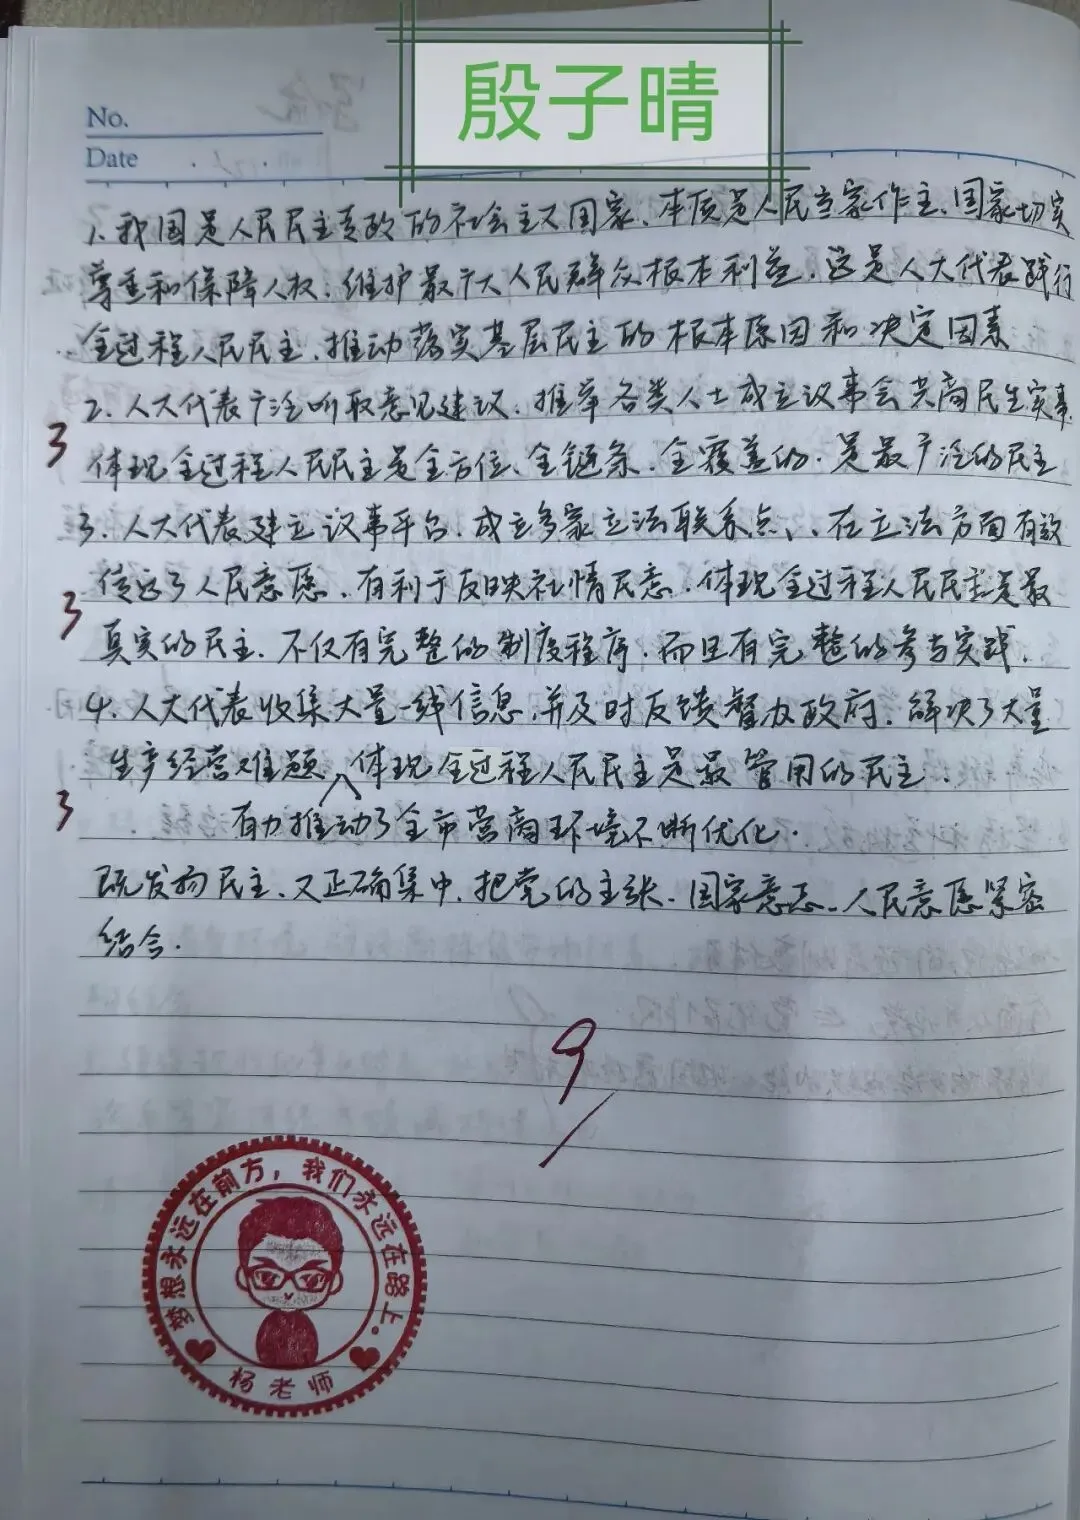 殷子晴
No.
Date
1.我国是人民民主专政的社会主义国家、本质是人民当家作主、国家切实
尊重和保障人权.维护最广大人民群众根本利益.这是人大代表践行
全过程人民民主.推动落实基层民主的根本原因和决定因素
2.人大代表广泛听取意见建议.推举各类人士成立议事会共商民生实事
3
体现全过程人民民主是全方位、全链条.全覆盖的.是最广泛的民主
3.人大代表建立议事平台.成立多家立法联系点、.在立法方面有效
传达了人民意愿.有利于反映社情民意.体现全过程人民民主是最
3
真实的民主.不仅有完整的制度程序.而且有完整的参与实践.
4.人大代表收集大量一线信息.并及时反馈督办政府.解决了大量
生产经营难题、体现全过程人民民主是最管用的民主.
3
有力推动了全市营商环境不断优化.
既发扬民主、又正确集中.把党的主张.国家意志.人民意愿紧密
结合.
9
梦想永远在前方，我们永远在路上.
杨老师